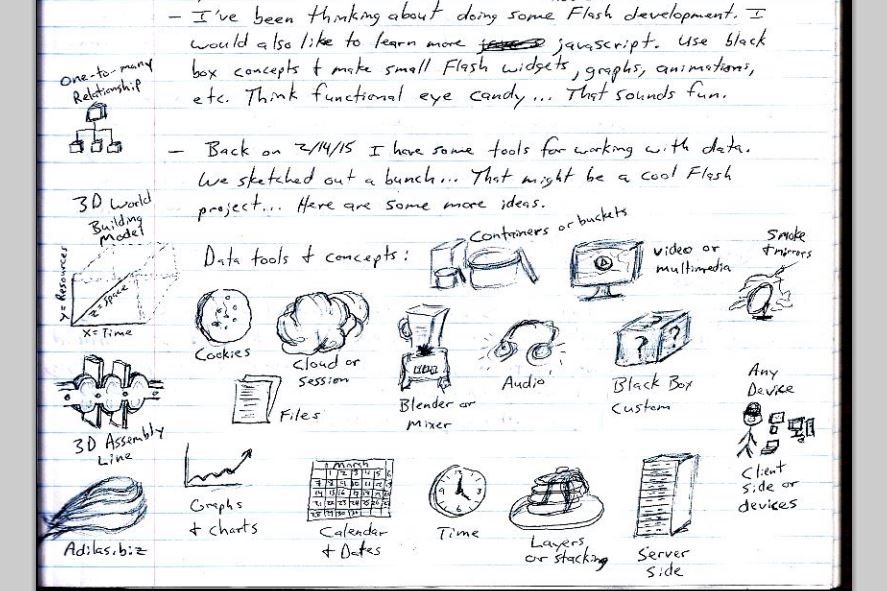 - I've been thinking about doing some Flash development. I
would also like to learn more javascript. Use black
box concepts + make small Flash widgets, graphs, animations,
etc. Think functional eye candy... That sounds fun.
One-to-many
Relationship
- Back on 2/14/15 I have some tools for working with data.
We sketched out a bunch... That might be a cool Flash
project... Here are some more ideas.
3D World
Building
Model
Y=Resources
Z=Space
X=Time
Data tools + concepts:
Containers or buckets
video or
multimedia
Smoke
+ mirrors
Cookies
Cloud or
Session
Blender or
Mixer
Audio
? ?
Black Box
Custom
Any
Device
3D Assembly
Line
Files
Client
side or
devices
Adilas.biz
Graphs
+ charts
March
Calendar
+ Dates
12
9 3
6
Time
Layers
or stacking
Server
Side